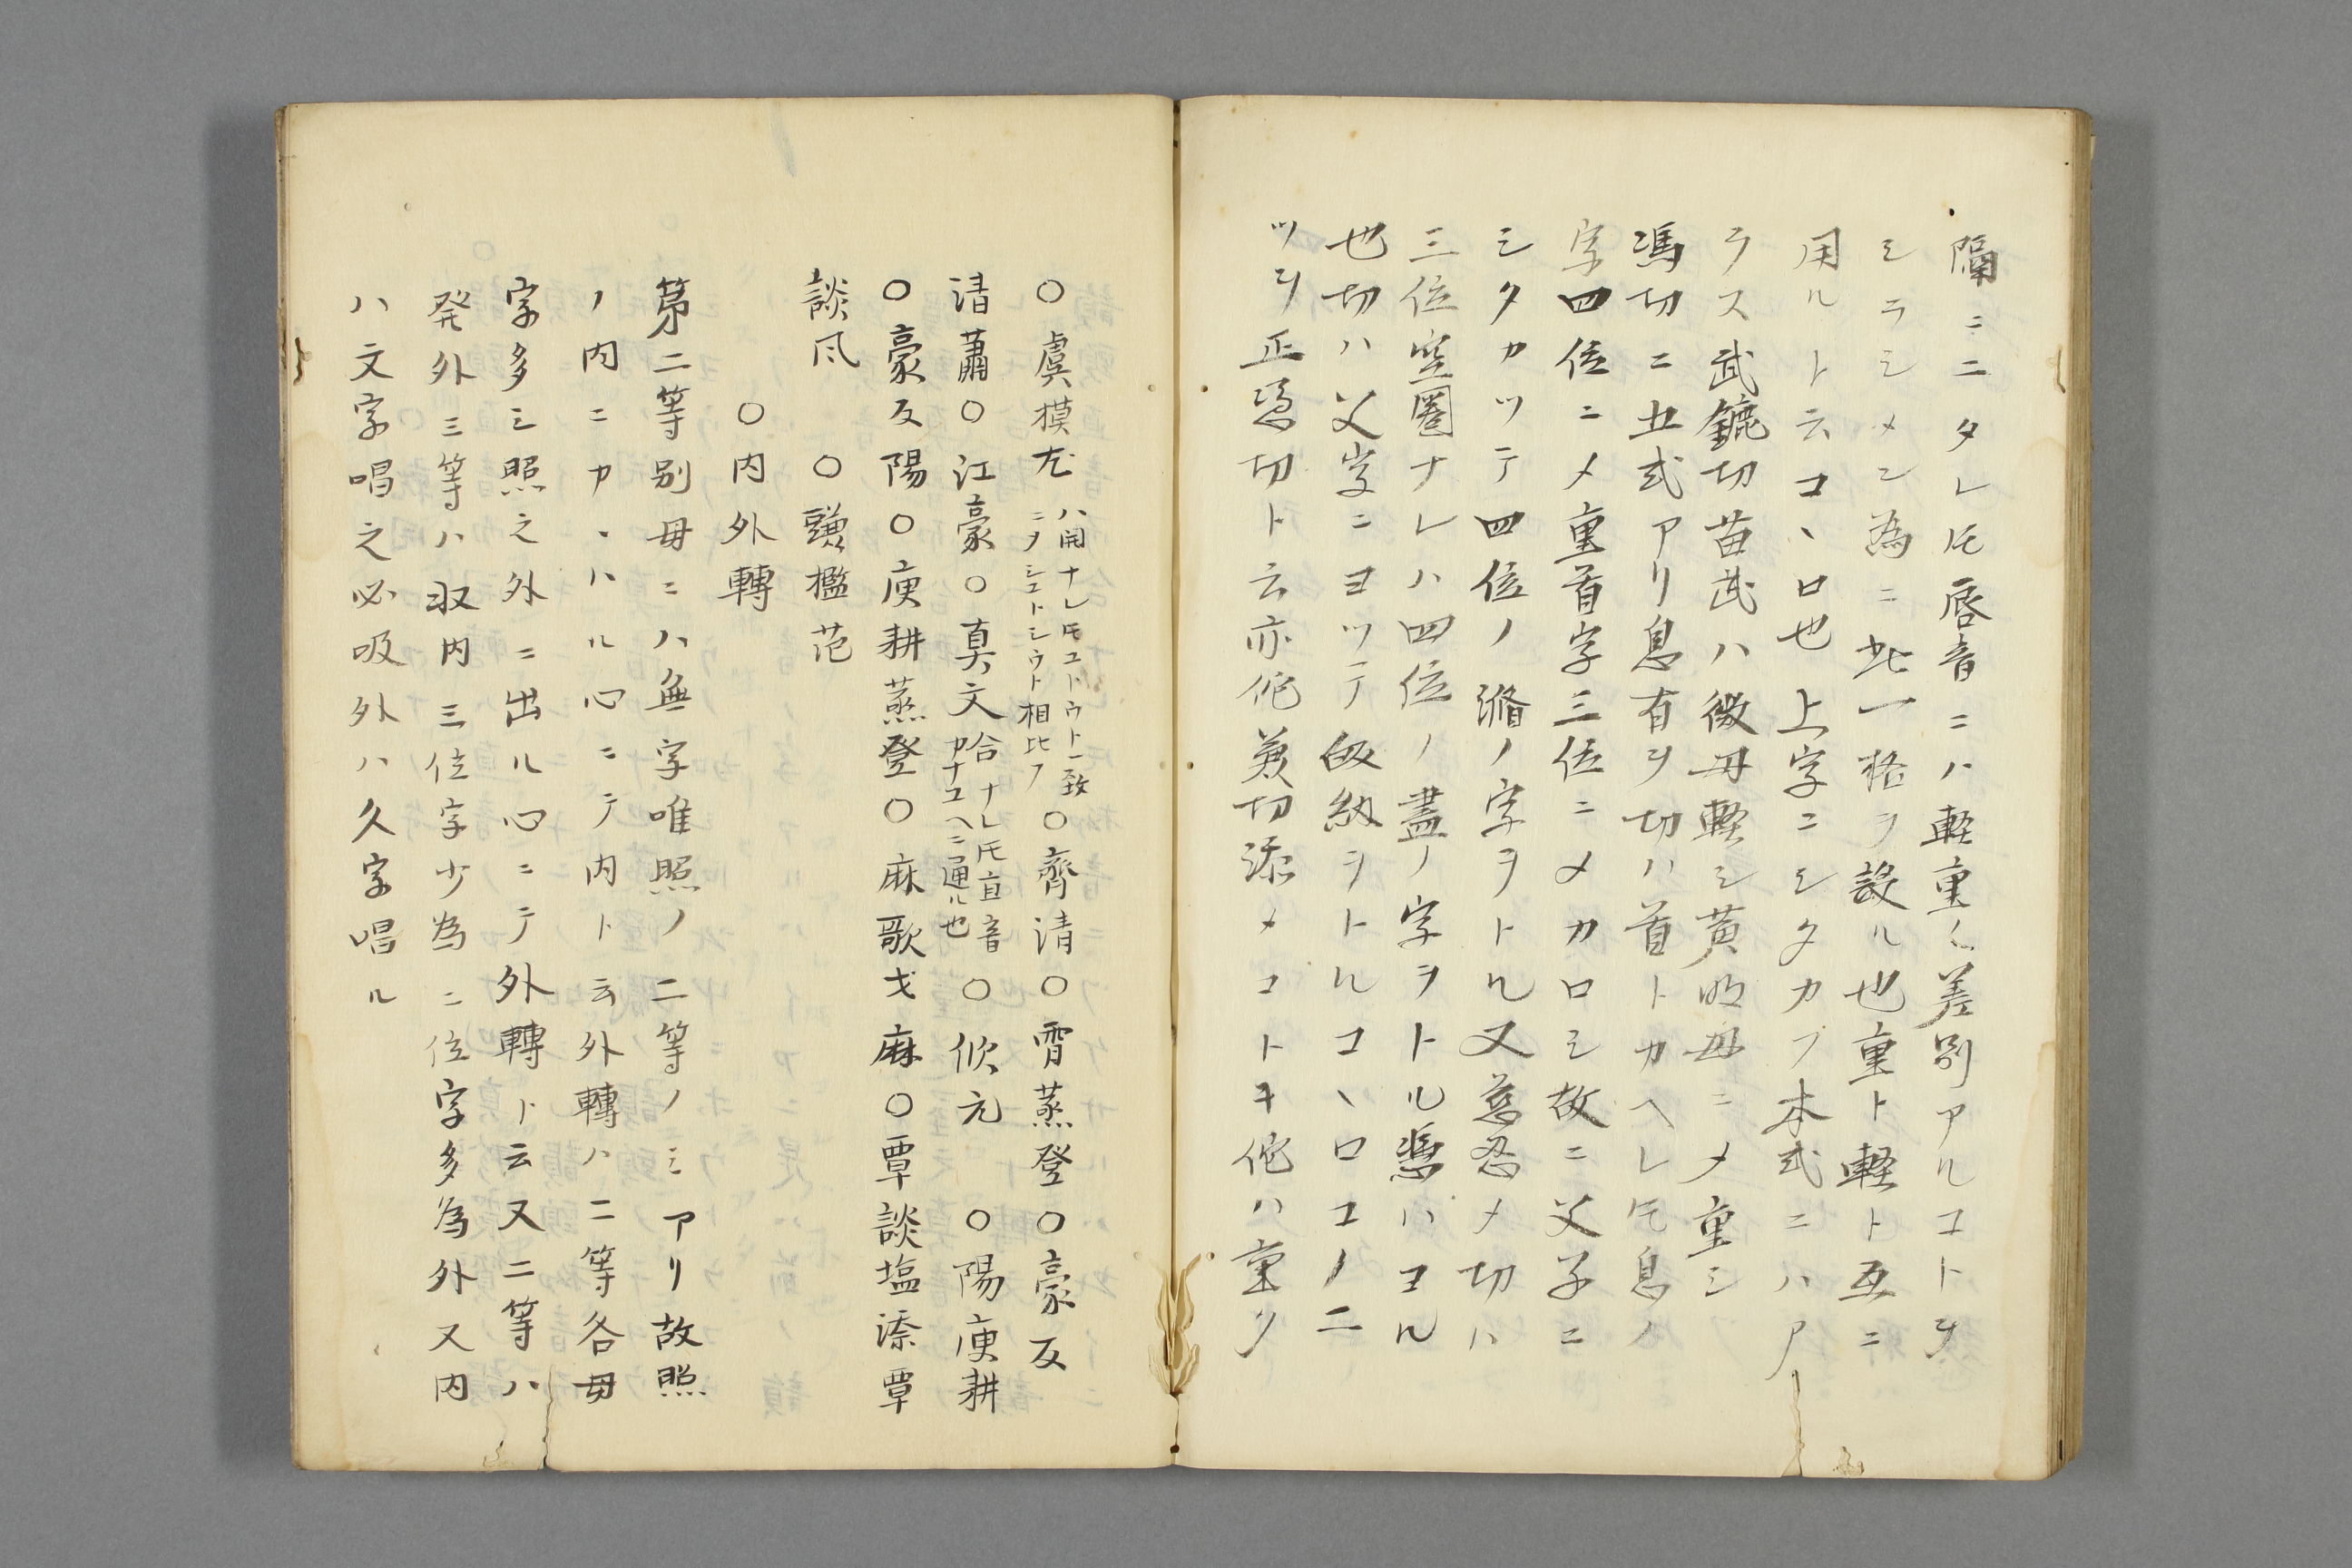 隔ニニタレ𪜈唇音ニハ軽重〱差別アルコトヲ
シラシメン為ニ此一格ヲ設ル也重ト軽ト互ニ
用ルト云コヽロ也上字ニシタカフ本式ニハア
ラス武鑣切苗武ハ微母軽シ黄明母ニメ重シ
馮切ニ五式アリ息有切ハ首トカヘレ𪜈息ノ
字四位ニメ重首字三位ニメカロシ故ニ父子ニ
シタカツテ四位ノ滫ノ字ヲトル又慈忍メ切ハ
三位空圏ナレハ四位ノ盡ノ字ヲトル憑ハヨル
也切ハ父字ニヨツテ飯納ヲトルコヽロコノ二
ツヲ正憑切ト云亦佗兼切添メコトキ佗ハ重ク
○虞模尤ハ開ナレ𪜈ユトウト一致
ニヲシエトシウト相比フ○齊清○霄蒸登○豪反
清蕭○江豪○真文哈合ナレ𪜈直音
カナユヘニ通ル也○欣元○陽庚耕
○豪反陽○庚耕蒸登○麻歌戈麻○覃談塩添覃
談凤○頭檻范
○内外轉
第二等別毋ニハ無字唯照ノ二等ノミアリ故照
ノ内ニカヽハル心ニテ内ト云外轉ハ二等各毋
字多シ照之外ニ出ル心ニテ外轉ト云又二等ハ
発外三等ハ収内三位字少為ニ位字多為外又内
ハ文字唱之必吸外ハ久字唱ル